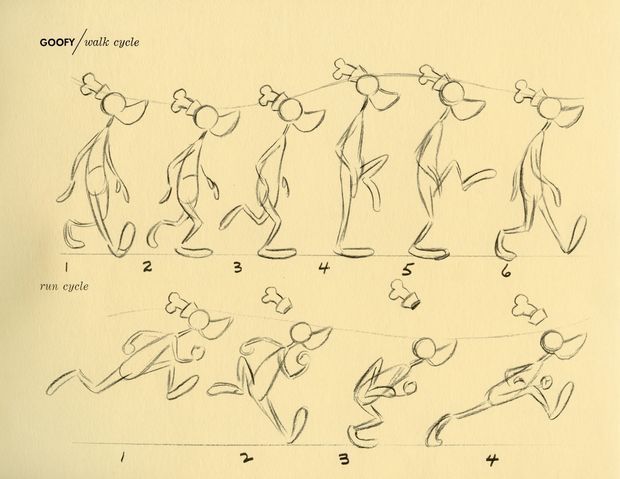 GOOFY/walk cycle
1 2 3 4 5 6
run cycle
1 2 3 4